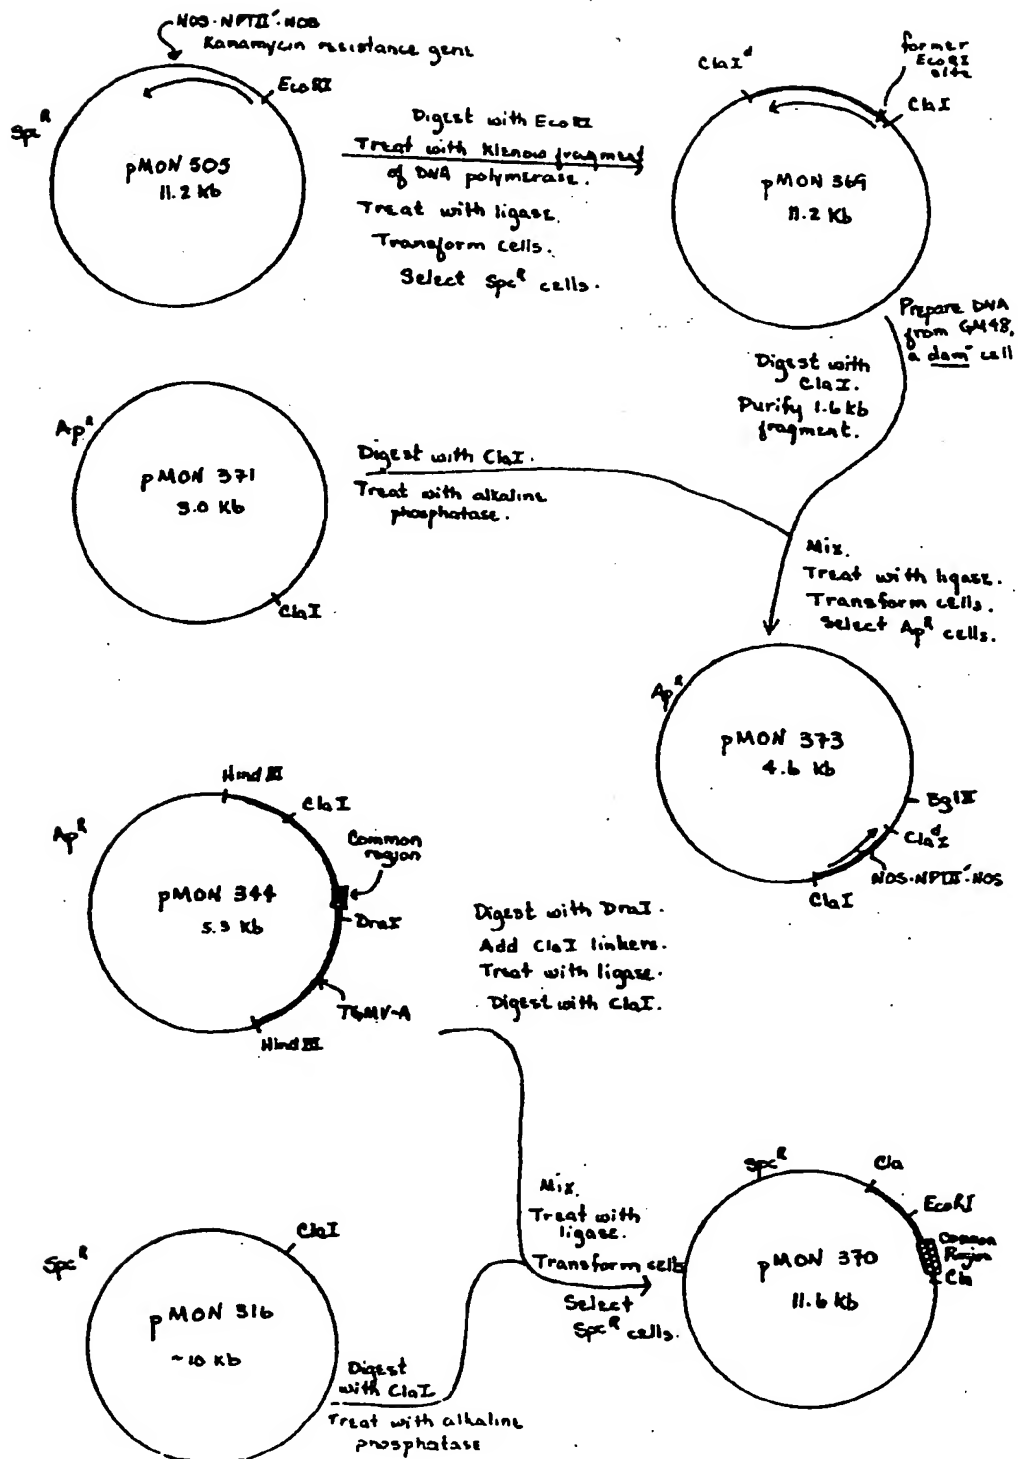 NOS-NPTII'-NOS
Kanamycin resistance gene
EcoRI
Spc^R
pMON 505
11.2 Kb
Digest with EcoRI
Treat with Klenow fragment
of DNA polymerase.
Treat with ligase.
Transform cells.
Select Spc^R cells.
ClaI^d
former
EcoRI
site
ClaI
pMON 369
11.2 Kb
Prepare DNA
from GM48,
a dam^- cell
Digest with
ClaI.
Purify 1.6 kb
fragment.
Ap^R
pMON 371
3.0 Kb
ClaI
Digest with ClaI.
Treat with alkaline
phosphatase.
Mix.
Treat with ligase.
Transform cells.
Select Ap^R cells.
Ap^R
pMON 373
4.6 Kb
BglII
ClaI^d
NOS-NPTII'-NOS
ClaI
Hind III
ClaI
Common
region
DraI
Ap^R
pMON 344
5.3 Kb
TGMV-A
Hind III
Digest with DraI.
Add ClaI linkers.
Treat with ligase.
Digest with ClaI.
Spc^R
ClaI
pMON 316
~10 Kb
Digest
with ClaI
Treat with alkaline
phosphatase
Mix.
Treat with
ligase.
Transform cells
Select
Spc^R cells.
Spc^R
Cla
EcoRI
Common
Region
Cla
pMON 370
11.6 Kb